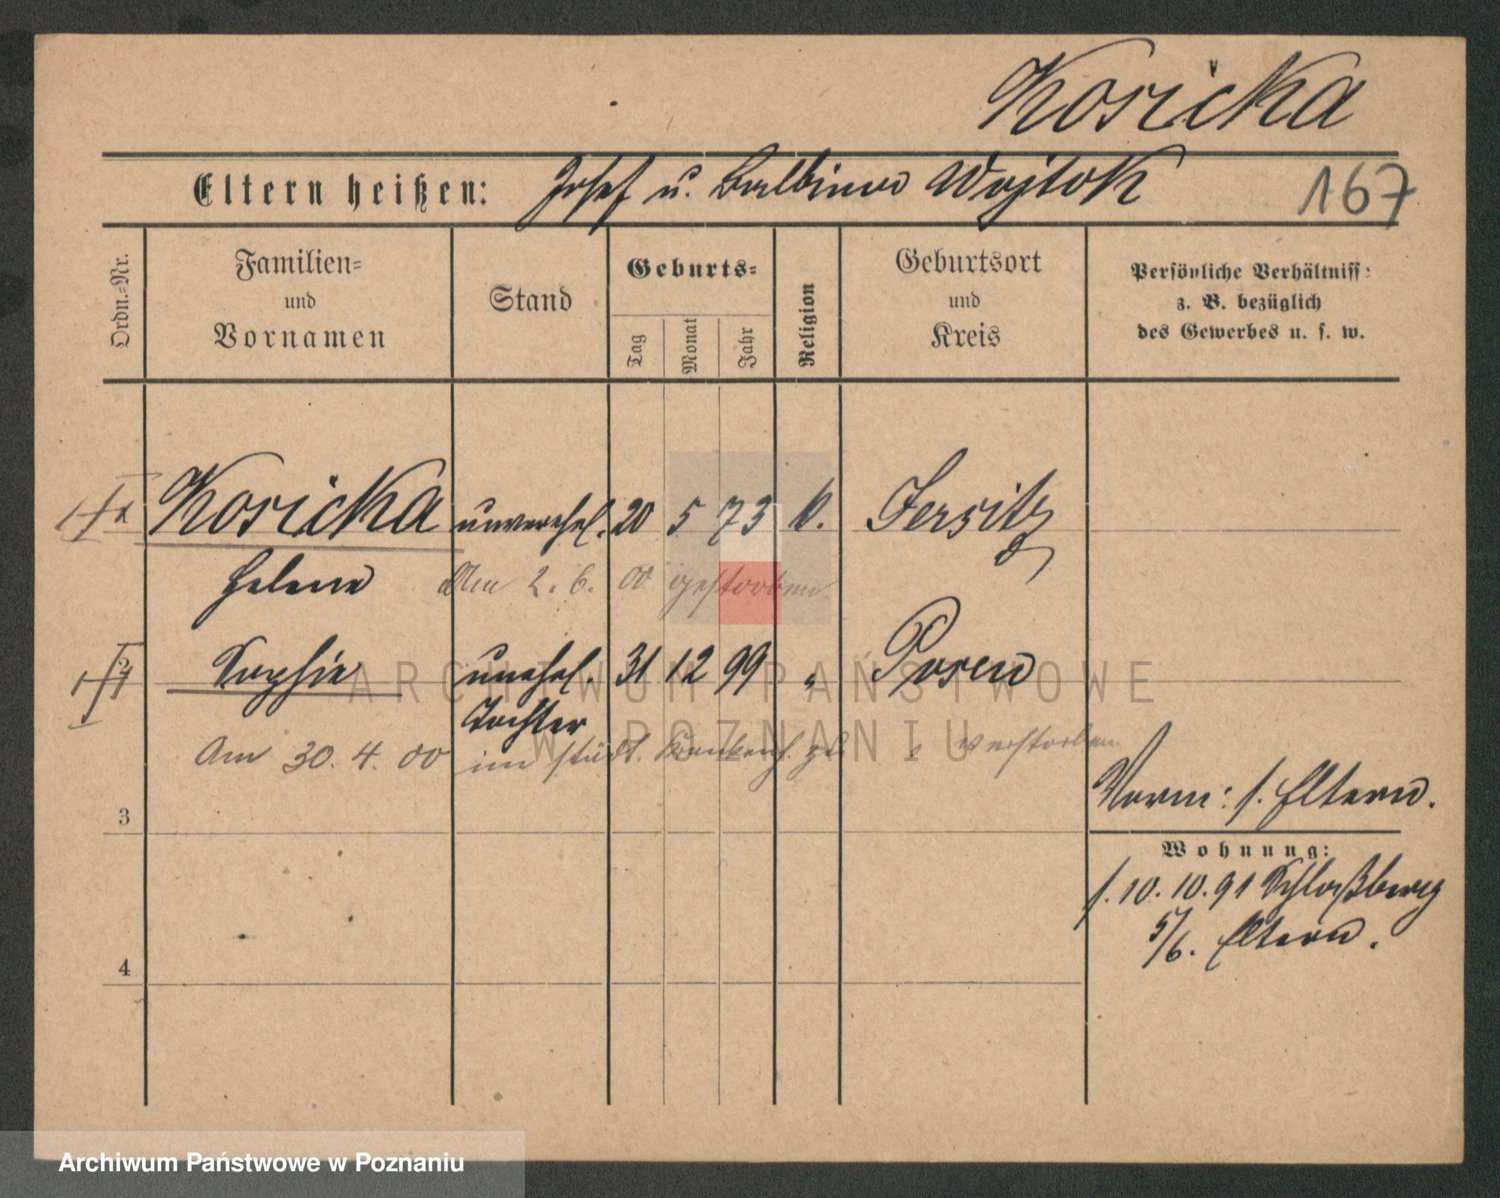 Kosicka
Eltern heißen: Josef u. Balbina Wojtok
167
Ordn.-Nr.
Familien-
und
Vornamen
Stand
Geburts-
Tag
Monat
Jahr
Religion
Geburtsort
und
Kreis
Persönliche Verhältniss:
z. B. bezüglich
des Gewerbes u. s. w.
Kosicka unverehel. 20 5 73 k. Jersitz
Helene
Am 2. 6. 00 gestorben.
2 Sophie unehel. 31 12 99 " Posen
Tochter
Am 30. 4. 00 im städt. Krankenh. verstorben
Vorm: s. Eltern.
3
Wohnung:
s. 10. 10. 91 Schloßberg
5/6. Eltern.
4
ARCHIWUM PAŃSTWOWE
W POZNANIU
Archiwum Państwowe w Poznaniu